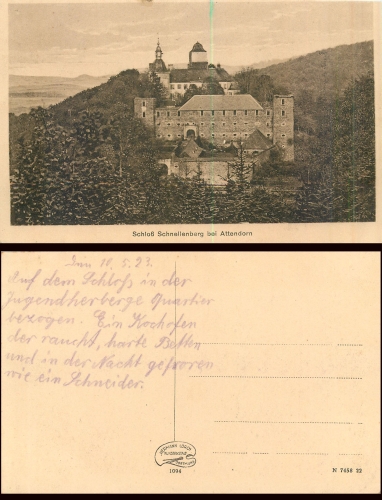 Schloß Schnellenberg bei Attendorn
Auf dem Schloß in der
Jugendherberge Quartier
bezogen. Ein Kochofen
der raucht, harte Betten
und in der Nacht gefroren
wie ein Schneider.
1094
N 7458 22